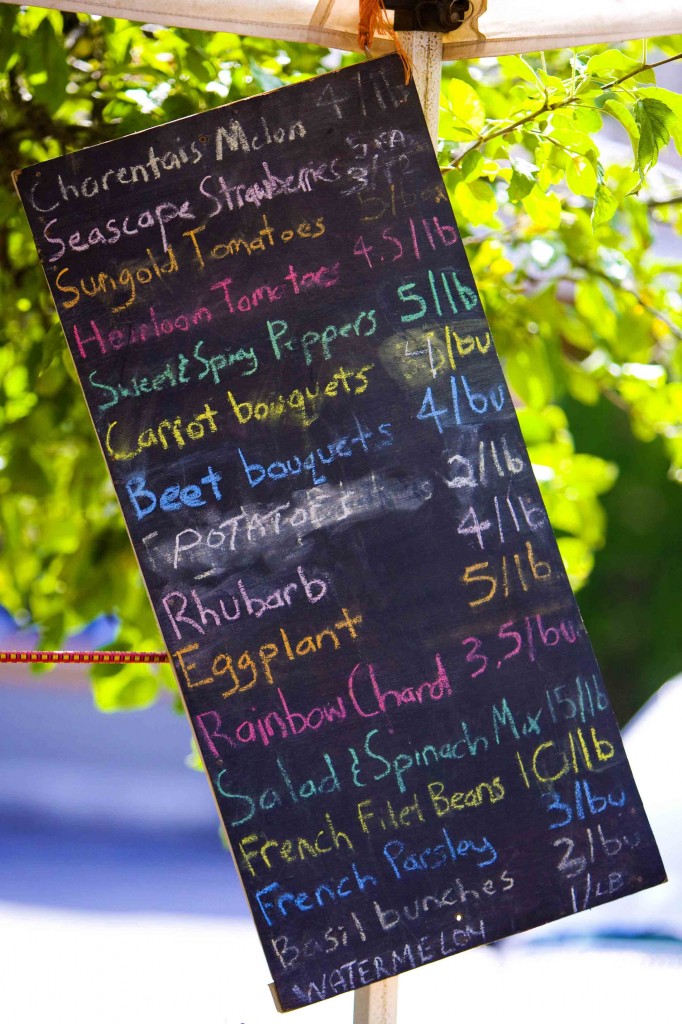 Charentais Melon 4/lb
Seascape Strawberries 5 EA 3/12
Sungold Tomatoes 5/box
Heirloom Tomatoes 4.5/lb
Sweet & Spicy Peppers 5/lb
Carrot bouquets 4/bu
Beet bouquets 4/bu
POTATOES 2/lb
Rhubarb 4/lb
Eggplant 5/lb
Rainbow Chard 3.5/bu
Salad & Spinach Mix 15/lb
French Filet Beans 10/lb
French Parsley 3/bu
Basil bunches 2/bu
WATERMELON 1/LB